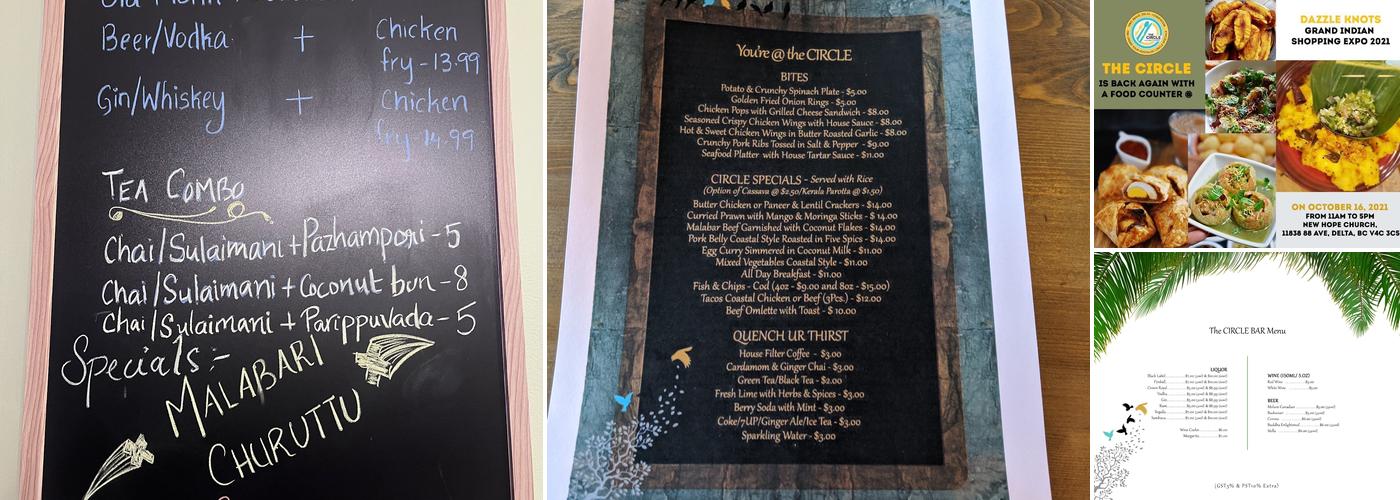 Beer/Vodka + Chicken
fry-13.99
Gin/Whiskey + Chicken
fry-14.99
TEA COMBO
Chai/Sulaimani + Pazhampori - 5
Chai/Sulaimani + Coconut bun - 8
Chai/Sulaimani + Parippuvada - 5
Specials:-
MALABARI
CHURUTTU
You're @ the CIRCLE
BITES
Potato & Crunchy Spinach Plate - $5.00
Golden Fried Onion Rings - $5.00
Chicken Pops with Grilled Cheese Sandwich - $8.00
Seasoned Crispy Chicken Wings with House Sauce - $8.00
Hot & Sweet Chicken Wings in Butter Roasted Garlic - $8.00
Crunchy Pork Ribs Tossed in Salt & Pepper - $9.00
Seafood Platter with House Tartar Sauce - $11.00
CIRCLE SPECIALS - Served with Rice
(Option of Cassava @ $2.50/Kerala Parotta @ $1.50)
Butter Chicken or Paneer & Lentil Crackers - $14.00
Curried Prawn with Mango & Moringa Sticks - $ 14.00
Malabar Beef Garnished with Coconut Flakes - $14.00
Pork Belly Coastal Style Roasted in Five Spices - $14.00
Egg Curry Simmered in Coconut Milk - $11.00
Mixed Vegetables Coastal Style - $11.00
All Day Breakfast - $11.00
Fish & Chips - Cod (4oz - $9.00 and 8oz - $15.00)
Tacos Coastal Chicken or Beef (3Pcs.) - $12.00
Beef Omlette with Toast - $ 10.00
QUENCH UR THIRST
House Filter Coffee - $3.00
Cardamom & Ginger Chai - $3.00
Green Tea/Black Tea - $2.00
Fresh Lime with Herbs & Spices - $3.00
Berry Soda with Mint - $3.00
Coke/7UP/Ginger Ale/Ice Tea - $3.00
Sparkling Water - $3.00
THE CIRCLE
IS BACK AGAIN WITH
A FOOD COUNTER
DAZZLE KNOTS
GRAND INDIAN
SHOPPING EXPO 2021
ON OCTOBER 16, 2021
FROM 11AM TO 5PM
NEW HOPE CHURCH,
11838 88 AVE, DELTA, BC V4C 3C5
The CIRCLE BAR Menu
LIQUOR
Black Label
Fireball
Crown Royal
Vodka
Gin
Rum
Tequila
Sambuca
Wine Cooler
Margarita
WINE (150ML/ 5 OZ)
Red Wine
White Wine
BEER
Molson Canadian
Budweiser
Corona
Buddha Enlightened
Stella
(GST5% & PST10% Extra)